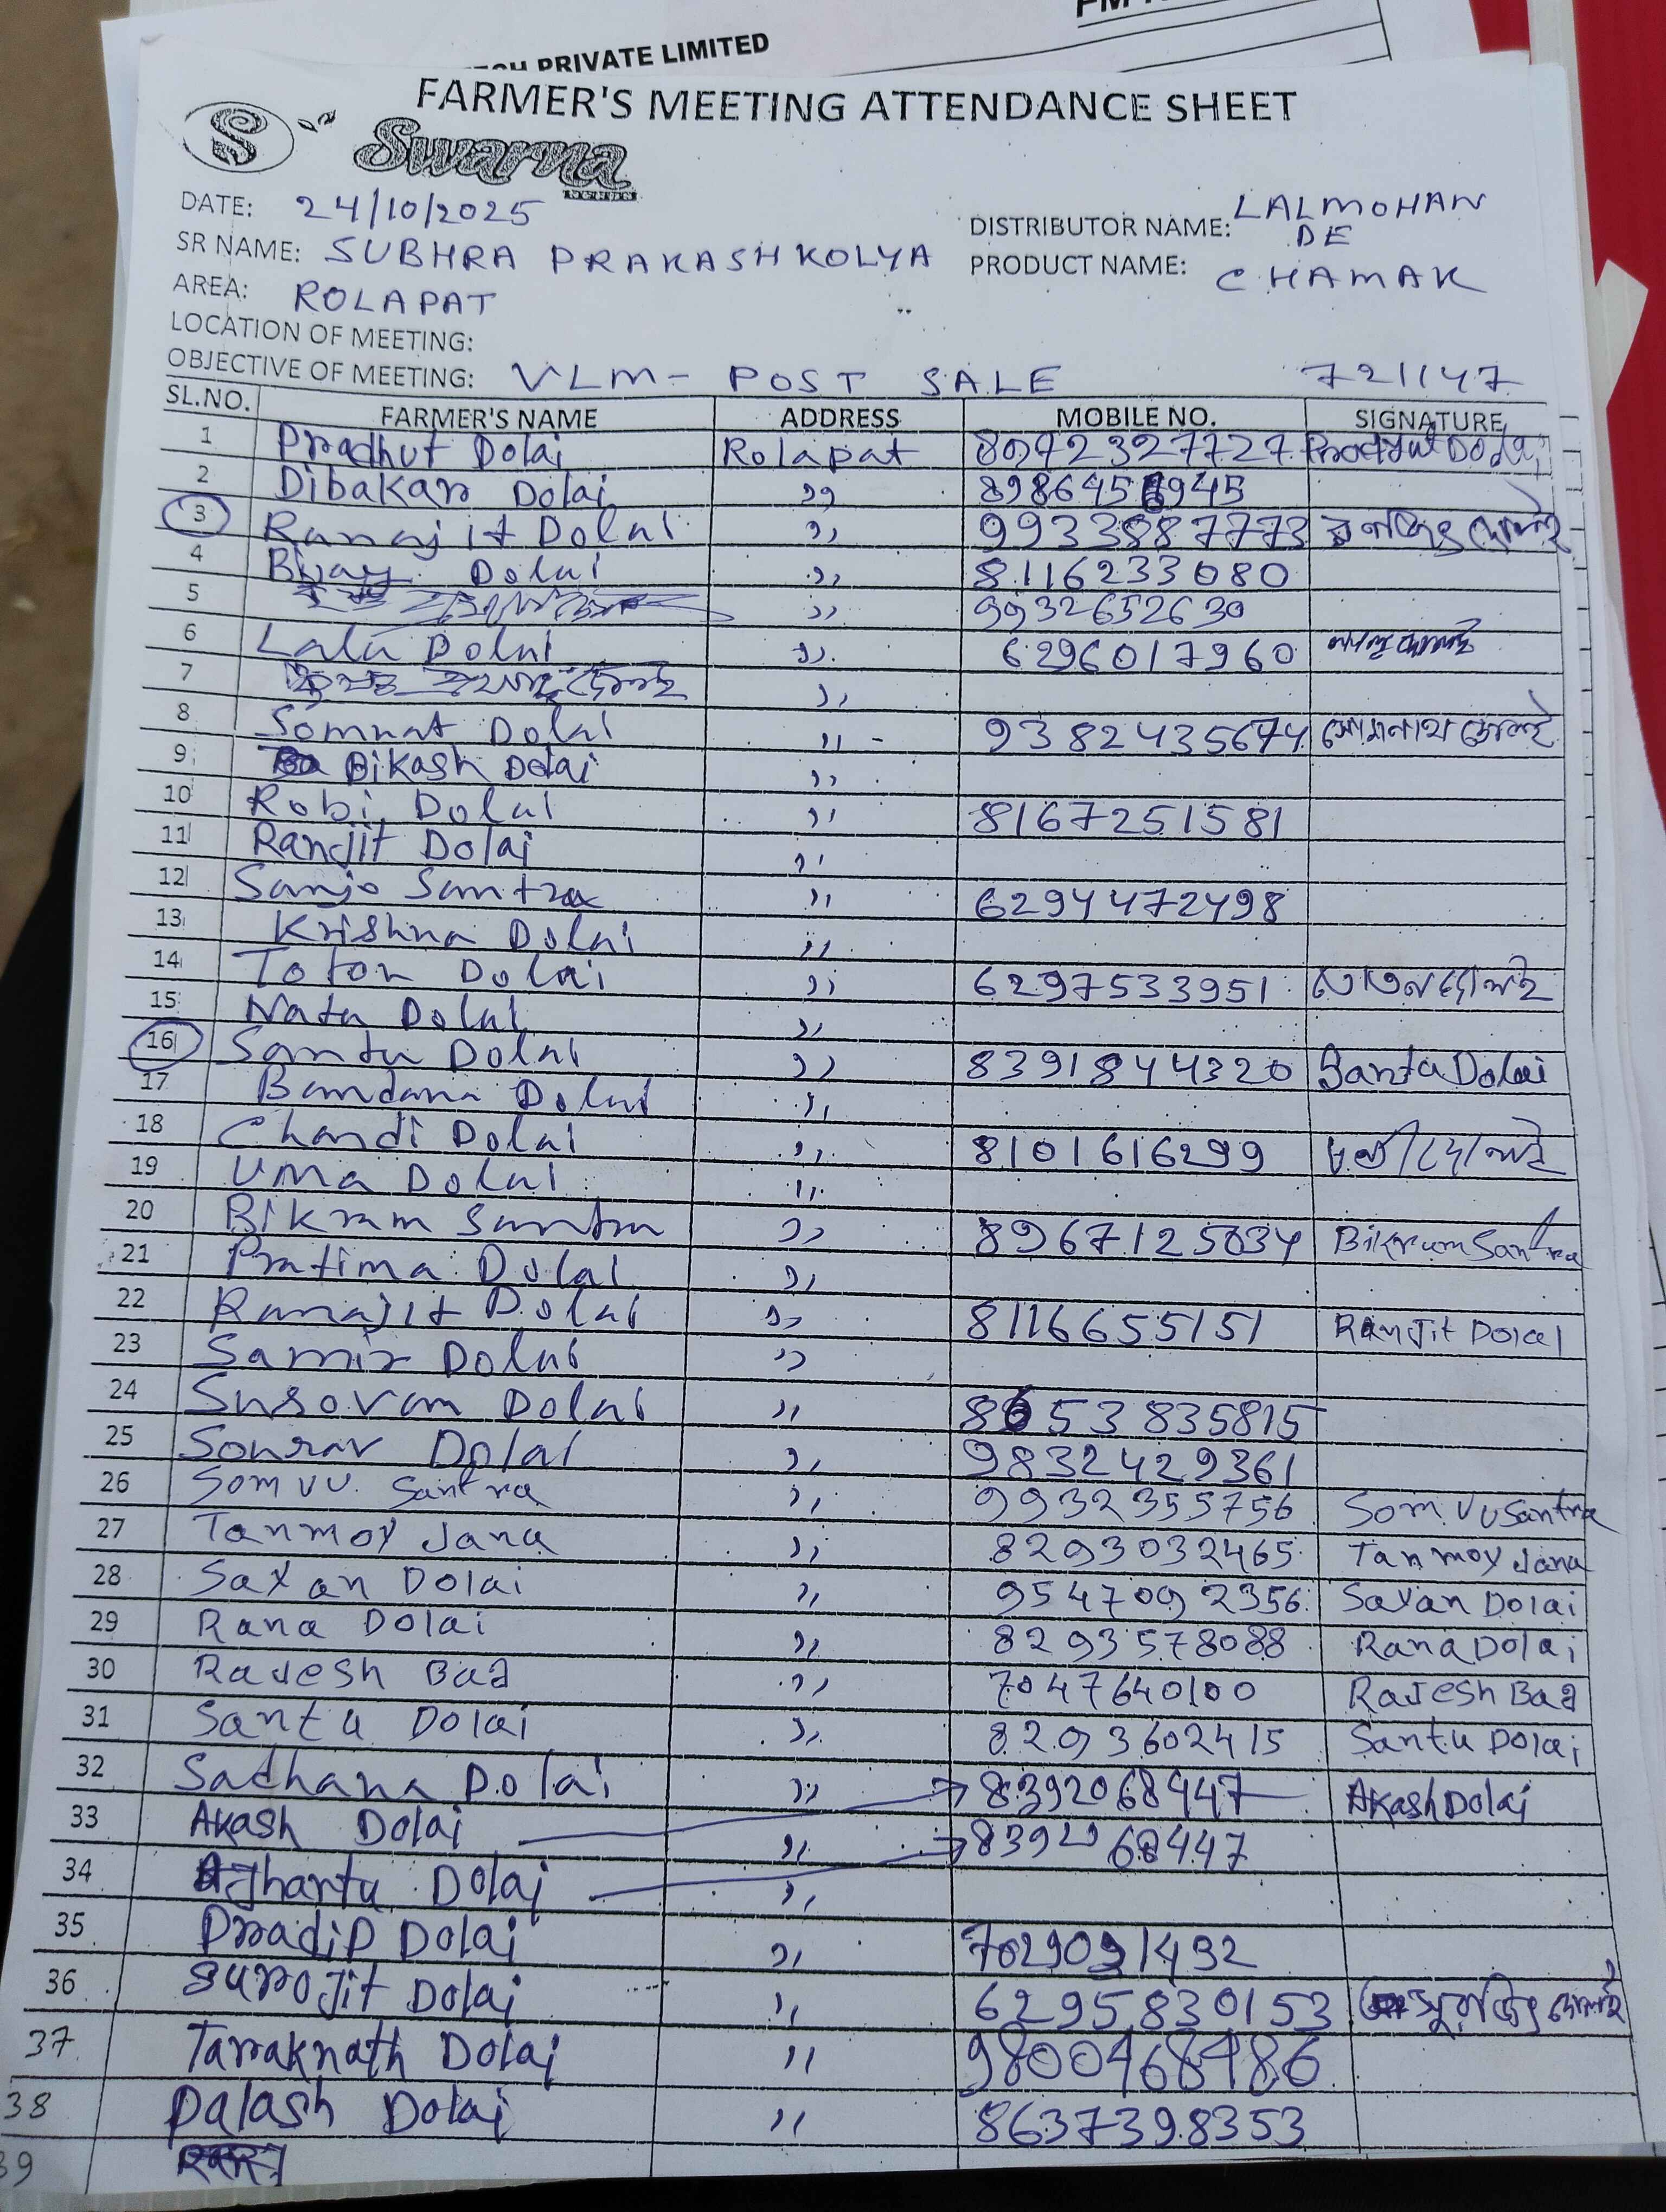 PRIVATE LIMITED
FARMER'S MEETING ATTENDANCE SHEET
S Swarna
DATE: 24/10/2025
DISTRIBUTOR NAME: LALMOHAN DE
SR NAME: SUBHRA PRAKASH KOLYA
PRODUCT NAME: CHAMAK
AREA: ROLAPAT
LOCATION OF MEETING:
OBJECTIVE OF MEETING: VLM- POST SALE 721147
SL.NO. FARMER'S NAME ADDRESS MOBILE NO. SIGNATURE
1 Pradhut Dolai Rolapat 80972327727 Prodyut Dolai
2 Dibakar Dolai ,, 898645
3 Ranajit Dolai ,, 9933887773 রনজিৎ দোলই
4 Bijay Dolai ,, 8116233080
5 ,, 9932652630
6 Lalu Dolai ,, 6296017960
7 ,,
8 Somnat Dolai ,, - 9382435674 সোমনাথ দোলই
9 Bikash Dolai ,,
10 Robi Dolai ,, 8167251581
11 Ranjit Dolai ,,
12 Sanjo Santra ,, 6294472498
13 Krishna Dolai ,,
14 Toton Dolai ,, 6297533951 তোতন দোলই
15 Natu Dolai ,,
16 Santu Dolai ,, 8391844320 Santu Dolai
17 Bandana Dolai ,,
18 Chandi Dolai ,, 8101616299 চন্ডী দোলই
19 Uma Dolai ,,
20 Bikram Santra ,, 8967125034 Bikram Santra
21 Pratima Dolai ,,
22 Ranajit Dolai ,, 8116655151 Ranjit Dolai
23 Samir Dolai ,,
24 Susovan Dolai ,, 8653835815
25 Sourav Dolai ,, 9832429361
26 Somvu Santra ,, 9932355756 Somvu Santra
27 Tanmoy Jana ,, 8293032465 Tanmoy Jana
28 Sayan Dolai ,, 9547092356 Sayan Dolai
29 Rana Dolai ,, 8293578088 Rana Dolai
30 Rajesh Bag ,, 7047640100 Rajesh Bag
31 Santu Dolai ,, 8293602415 Santu Dolai
32 Sadhana Dolai ,, 8392068447 Akash Dolai
33 Akash Dolai ,, 8392068447
34 Jhantu Dolai ,,
35 Pradip Dolai ,, 7029091492
36 Surojit Dolai ,, 6295830153 সুরজিৎ দোলই
37 Taraknath Dolai ,, 9800468486
38 Palash Dolai ,, 8637398353
39